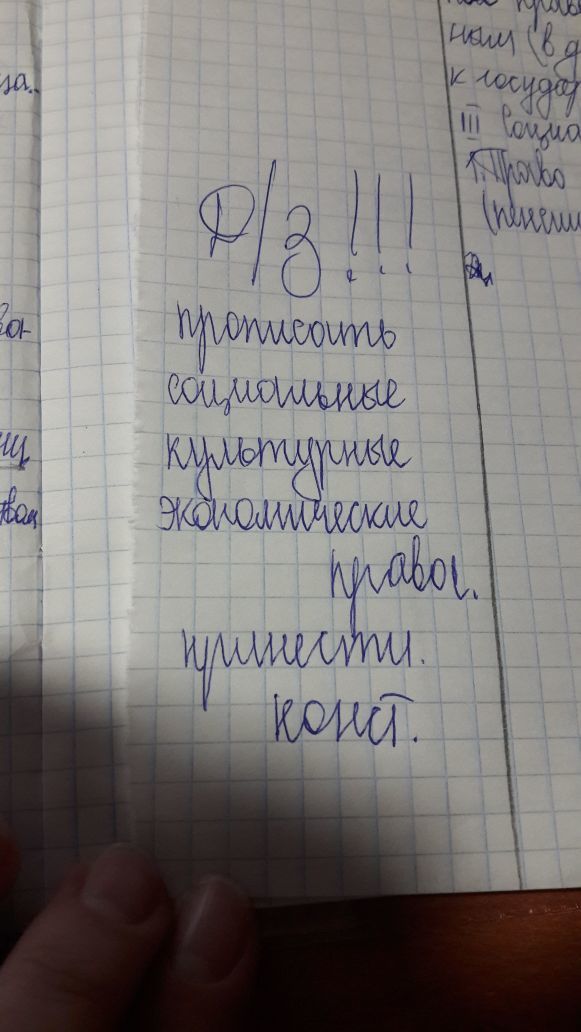 Д/З!!!
прописать
социальные
культурные
экономические
права.
принести.
конст.
ным (в д
к государ
III Социа
1. Право
(пенсии